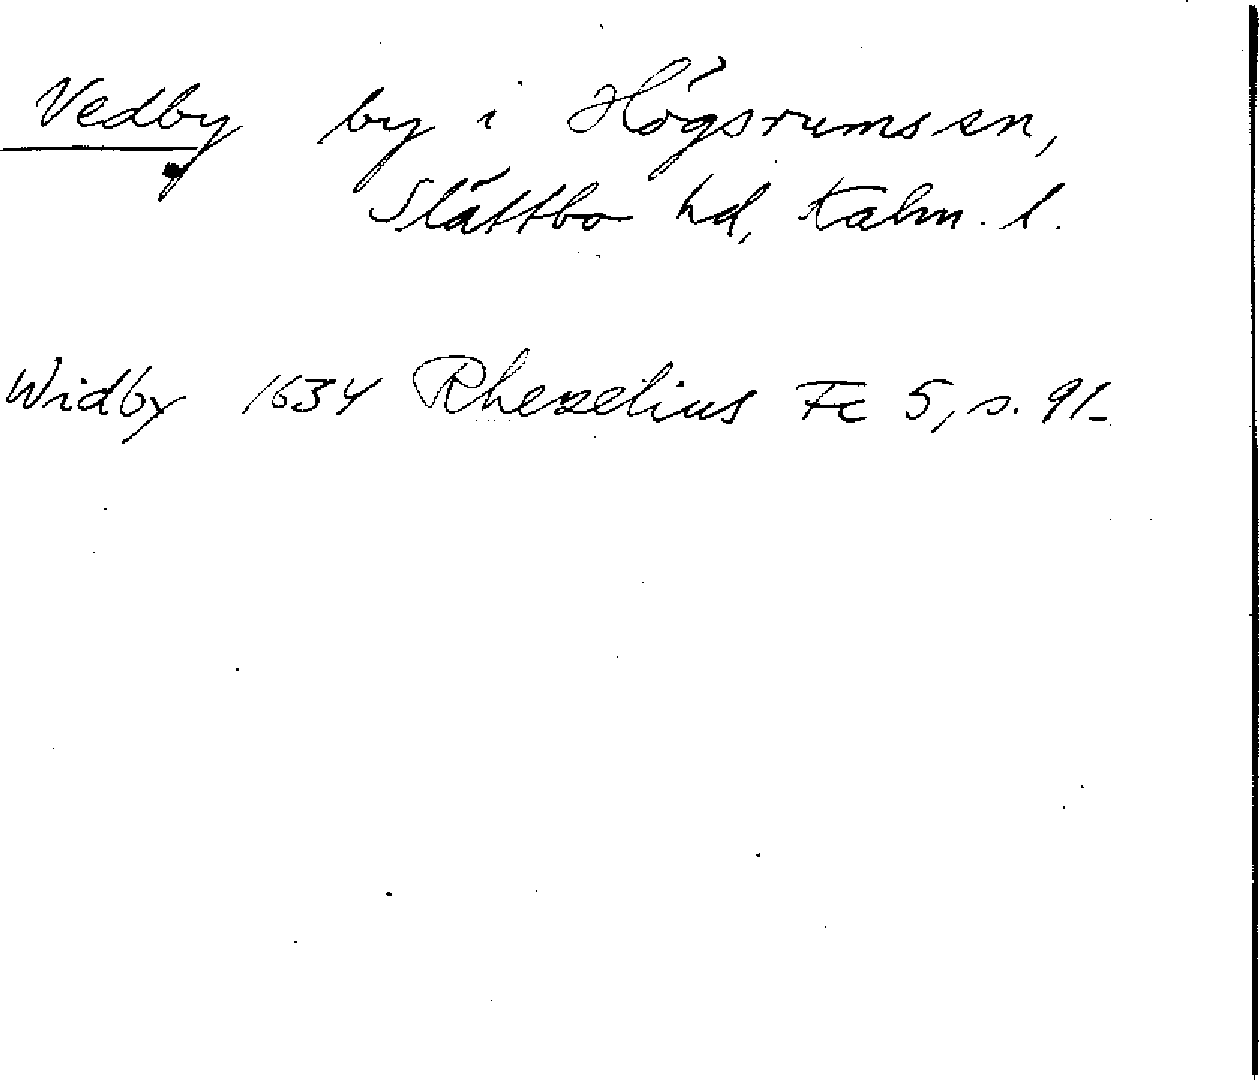 Vedby by i Högsrums sn,
Slättbo hd, Kalm. l.
Widby 1634 Rhezelius Fc 5, s. 91